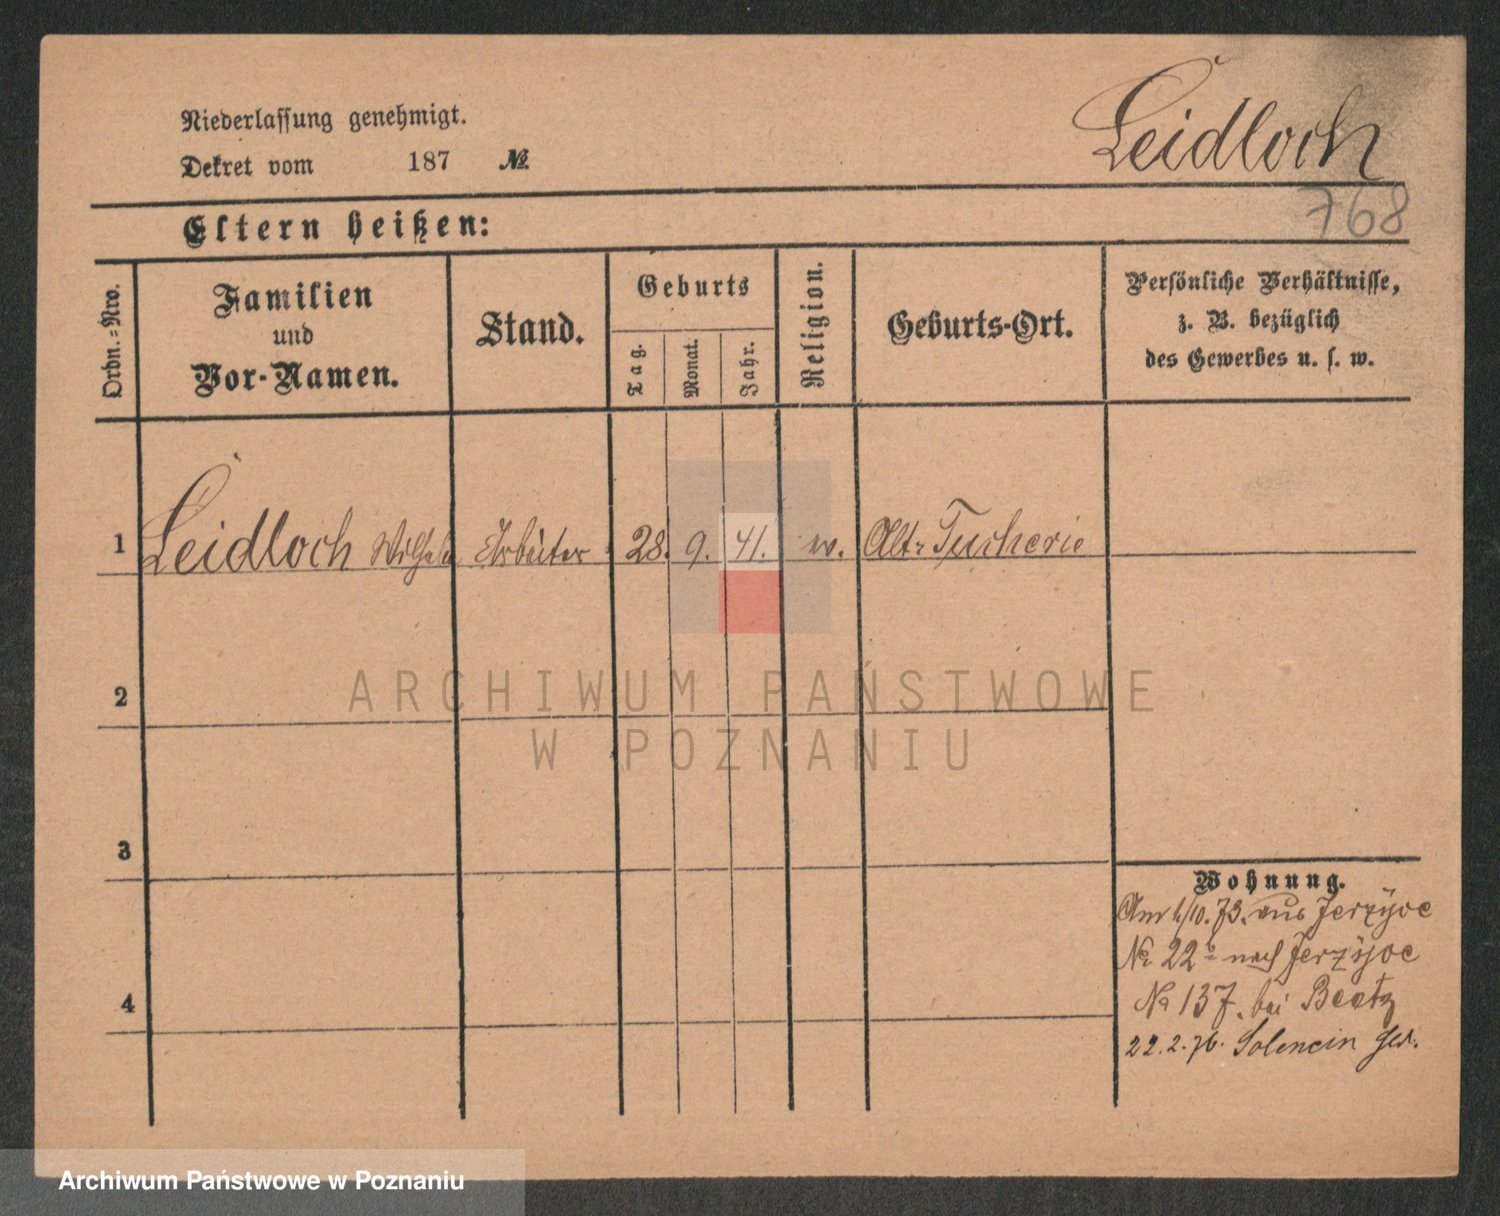 Leidloch
Niederlassung genehmigt.
Dekret vom 187 №
768
Eltern heißen:
Ordn.-Nro.
Familien
und
Vor-Namen.
Stand.
Geburts
Tag.
Monat.
Jahr.
Religion.
Geburts-Ort.
Persönliche Verhältnisse,
z. B. bezüglich
des Gewerbes u. s. w.
1 Leidloch Wilhelm Arbeiter 28. 9. 41. ev. Alt-
2
3
4
Wohnung.
Am 1/10. 73. aus Jerzyce
No 22 nach Jerzyce
No 137. bei
22. 2. 76. Solencin
ARCHIWUM PAŃSTWOWE
W POZNANIU
Archiwum Państwowe w Poznaniu